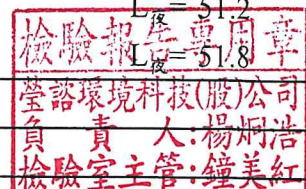 L夜= 51.2
檢驗報告專用章
L夜= 51.8
瑩諮環境科技(股)公司
負責人:楊炯浩
檢驗室主管:鐘美紅